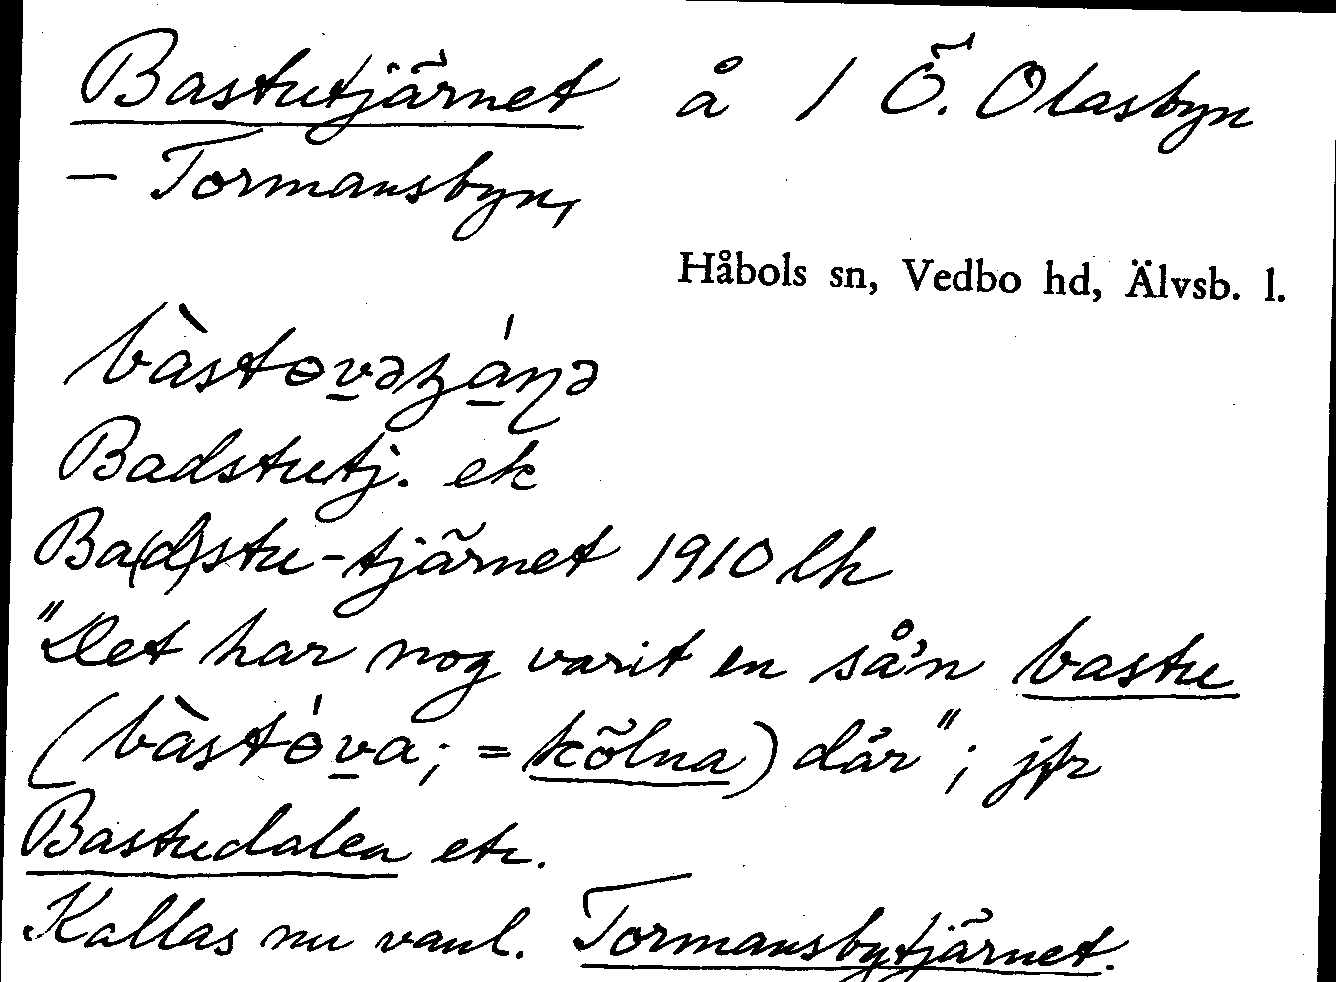 Bastutjärnet å 1 Ö. Olasbyn
– Tormansbyn,
Håbols sn, Vedbo hd, Älvsb. l.
Badstutj. ek
Ba(d)stu-tjärnet 1910 lh
"Det har nog varit en så'n bastu
(bàstóva; = kölna) där"; jfr
Bastudalen etc.
Kallas nu vanl. Tormansbytjärnet.